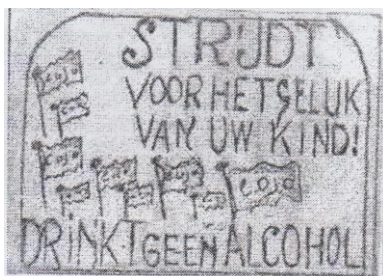 STRIJDT
VOOR HET GELUK
VAN UW KIND!
DRINKT GEEN ALCOHOL